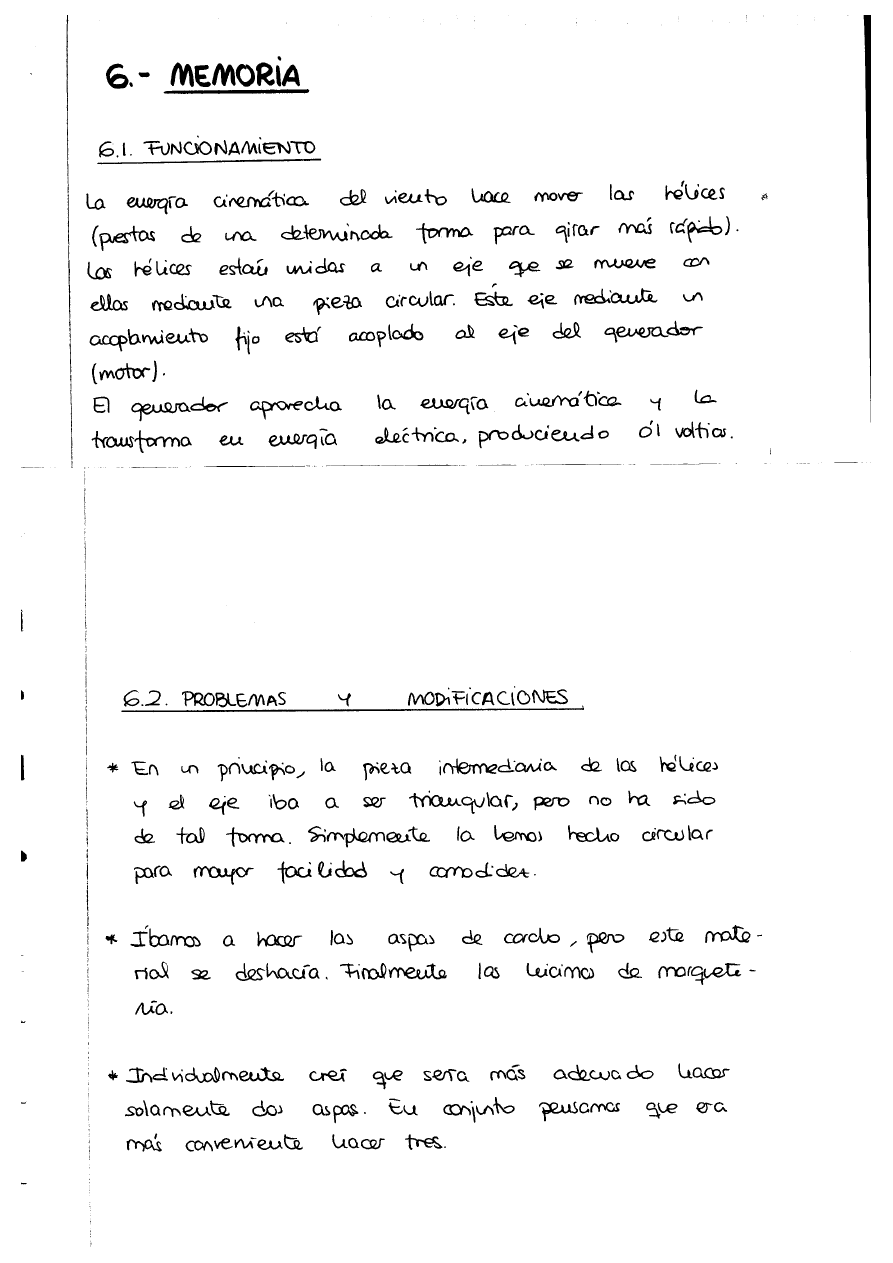 6.- MEMORIA
6.1. FUNCIONAMIENTO
La energía cinemática del viento hace mover las hélices
(puestas de una determinada forma para girar más rápido).
Las hélices están unidas a un eje que se mueve con
ellas mediante una pieza circular. Este eje mediante un
acoplamiento fijo está acoplado al eje del generador
(motor).
El generador aprovecha la energía cinemática y la
transforma en energía eléctrica, produciendo 0'1 voltios.
6.2. PROBLEMAS Y MODIFICACIONES
* En un principio, la pieza intermediaria de las hélices
y el eje iba a ser triangular, pero no ha sido
de tal forma. Simplemente la hemos hecho circular
para mayor facilidad y comodidez.
* Íbamos a hacer las aspas de corcho, pero este mate-
rial se deshacía. Finalmente las hicimos de marquete-
ría.
* Individualmente creí que sería más adecuado hacer
solamente dos aspas. En conjunto pensamos que era
más conveniente hacer tres.